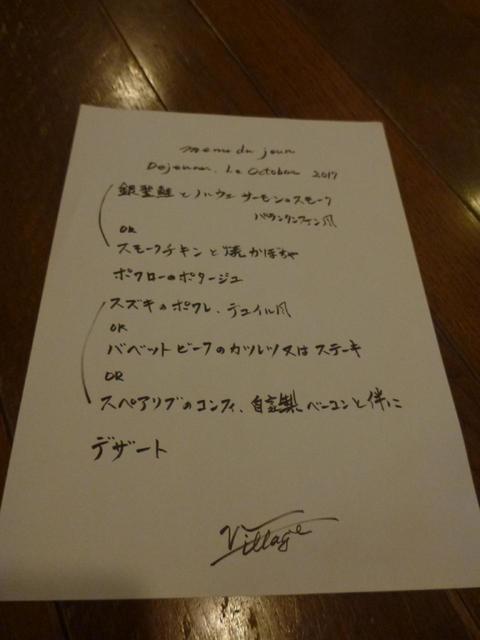 menu du jour
Dejeuner. le October 2017
銀聖鮭とノルウェーサーモンのスモーク
バランタンファン風
OR
スモークチキンと焼かぼちゃ
ポワローのポタージュ
スズキのポワレ、デュイル風
OR
バベットビーフのカツレツ又はステーキ
OR
スペアリブのコンフィ、自家製ベーコンと伴に
デザート
Village